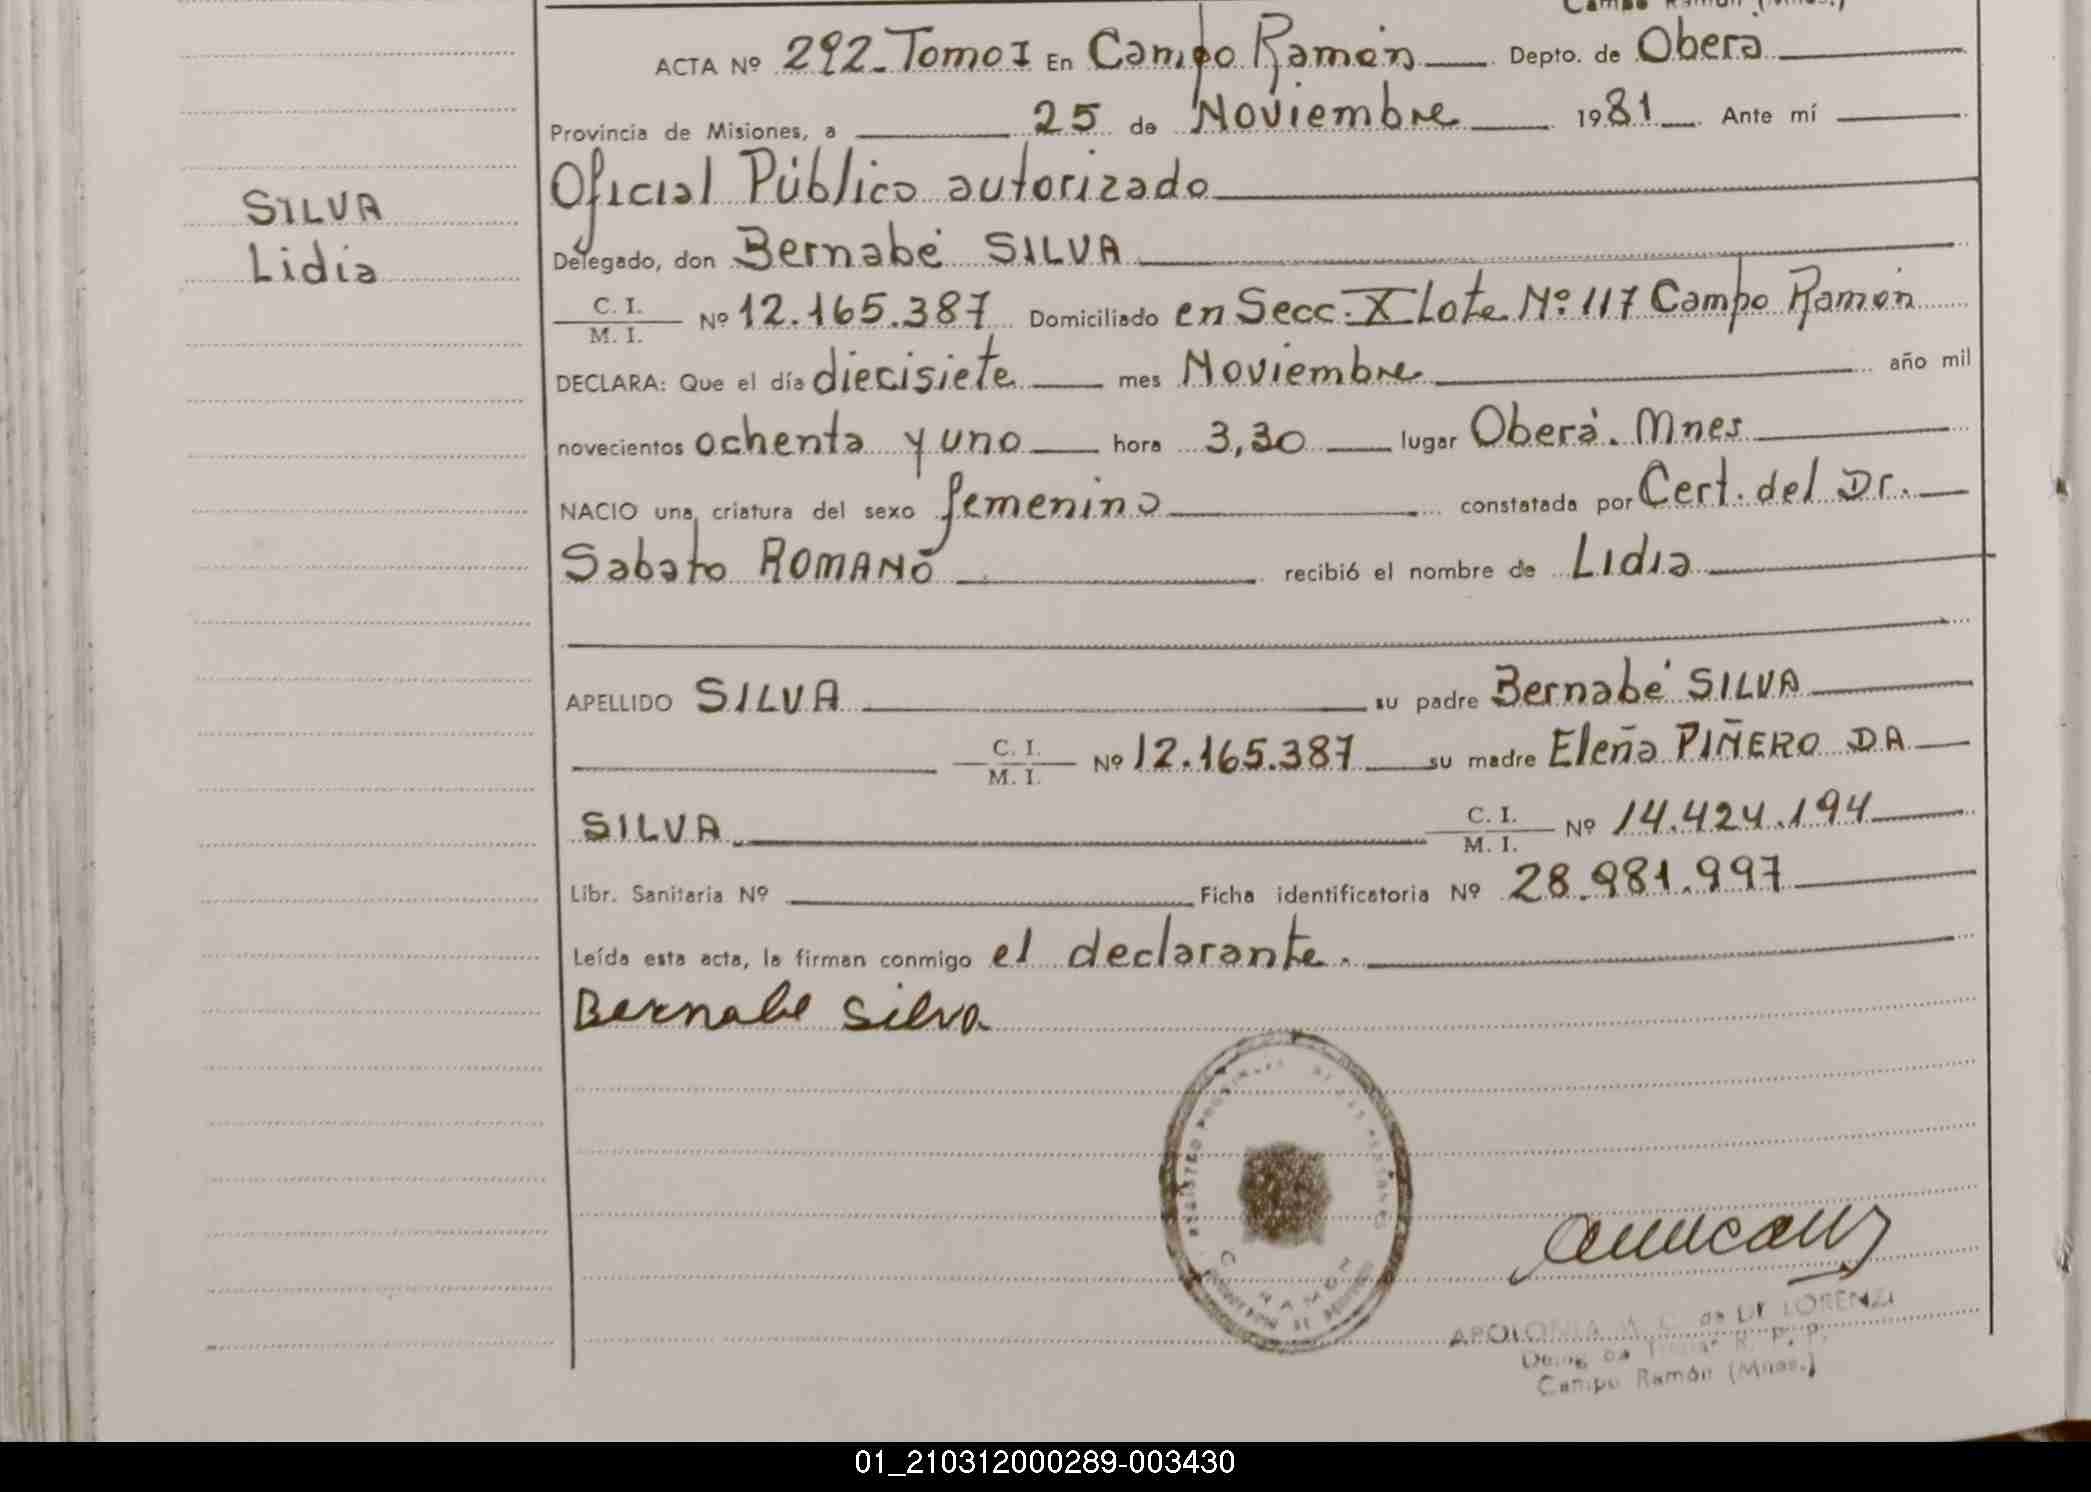 ACTA Nº 292 - Tomo I En Campo Ramón Depto. de Oberá
Provincia de Misiones, a 25 de Noviembre 1981 Ante mí
Oficial Público autorizado
SILVA
Lidia
Delegado, don Bernabé SILVA
C. I.
M. I. Nº 12.165.387 Domiciliado en Secc. X Lote Nº 117 Campo Ramón
DECLARA: Que el día diecisiete mes Noviembre año mil
novecientos ochenta y uno hora 3,30 lugar Oberá. Mnes
NACIO una criatura del sexo femenino constatada por Cert. del Dr.
Sabato ROMANO recibió el nombre de Lidia
APELLIDO SILVA su padre Bernabé SILVA
C. I.
M. I. Nº 12.165.387 su madre Elena PIÑERO DA
SILVA C. I.
M. I. Nº 14.424.194
Libr. Sanitaria Nº Ficha identificatoria Nº 28.981.997
Leída esta acta, la firman conmigo el declarante.
Bernabe Silva
APOLONIA M. C. de DE LORENZI
Campo Ramón (Mnes.)
01_210312000289-003430